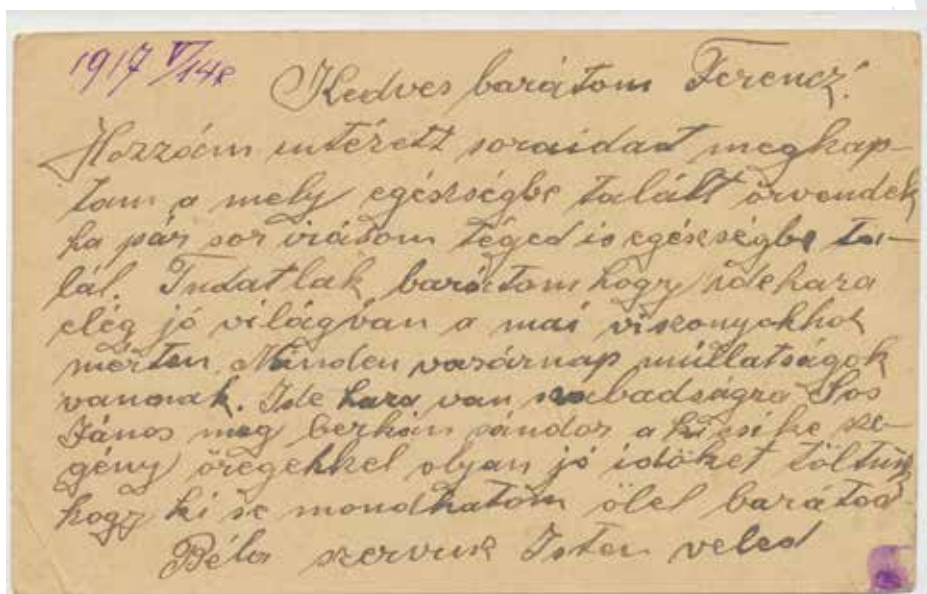 1917 V/14k
Kedves barátom Ferencz!
Hozzám intézett soraidat megkap-
tam a mely egészségbe talált örvendek
ha pár sor irátom téged is egészségbe ta-
lál. Tudatlak barátom hogy idehaza
elég jó világ van a mai viszonyokhoz
mérten. Minden vasárnap múllatságok
vannak. Ide haza van szabadságra Sos
János meg sándor a ki sze-
gény öregekkel olyan jó időket töltünk
hogy ki se mondhatom ölel barátod
Béla szervusz Isten veled